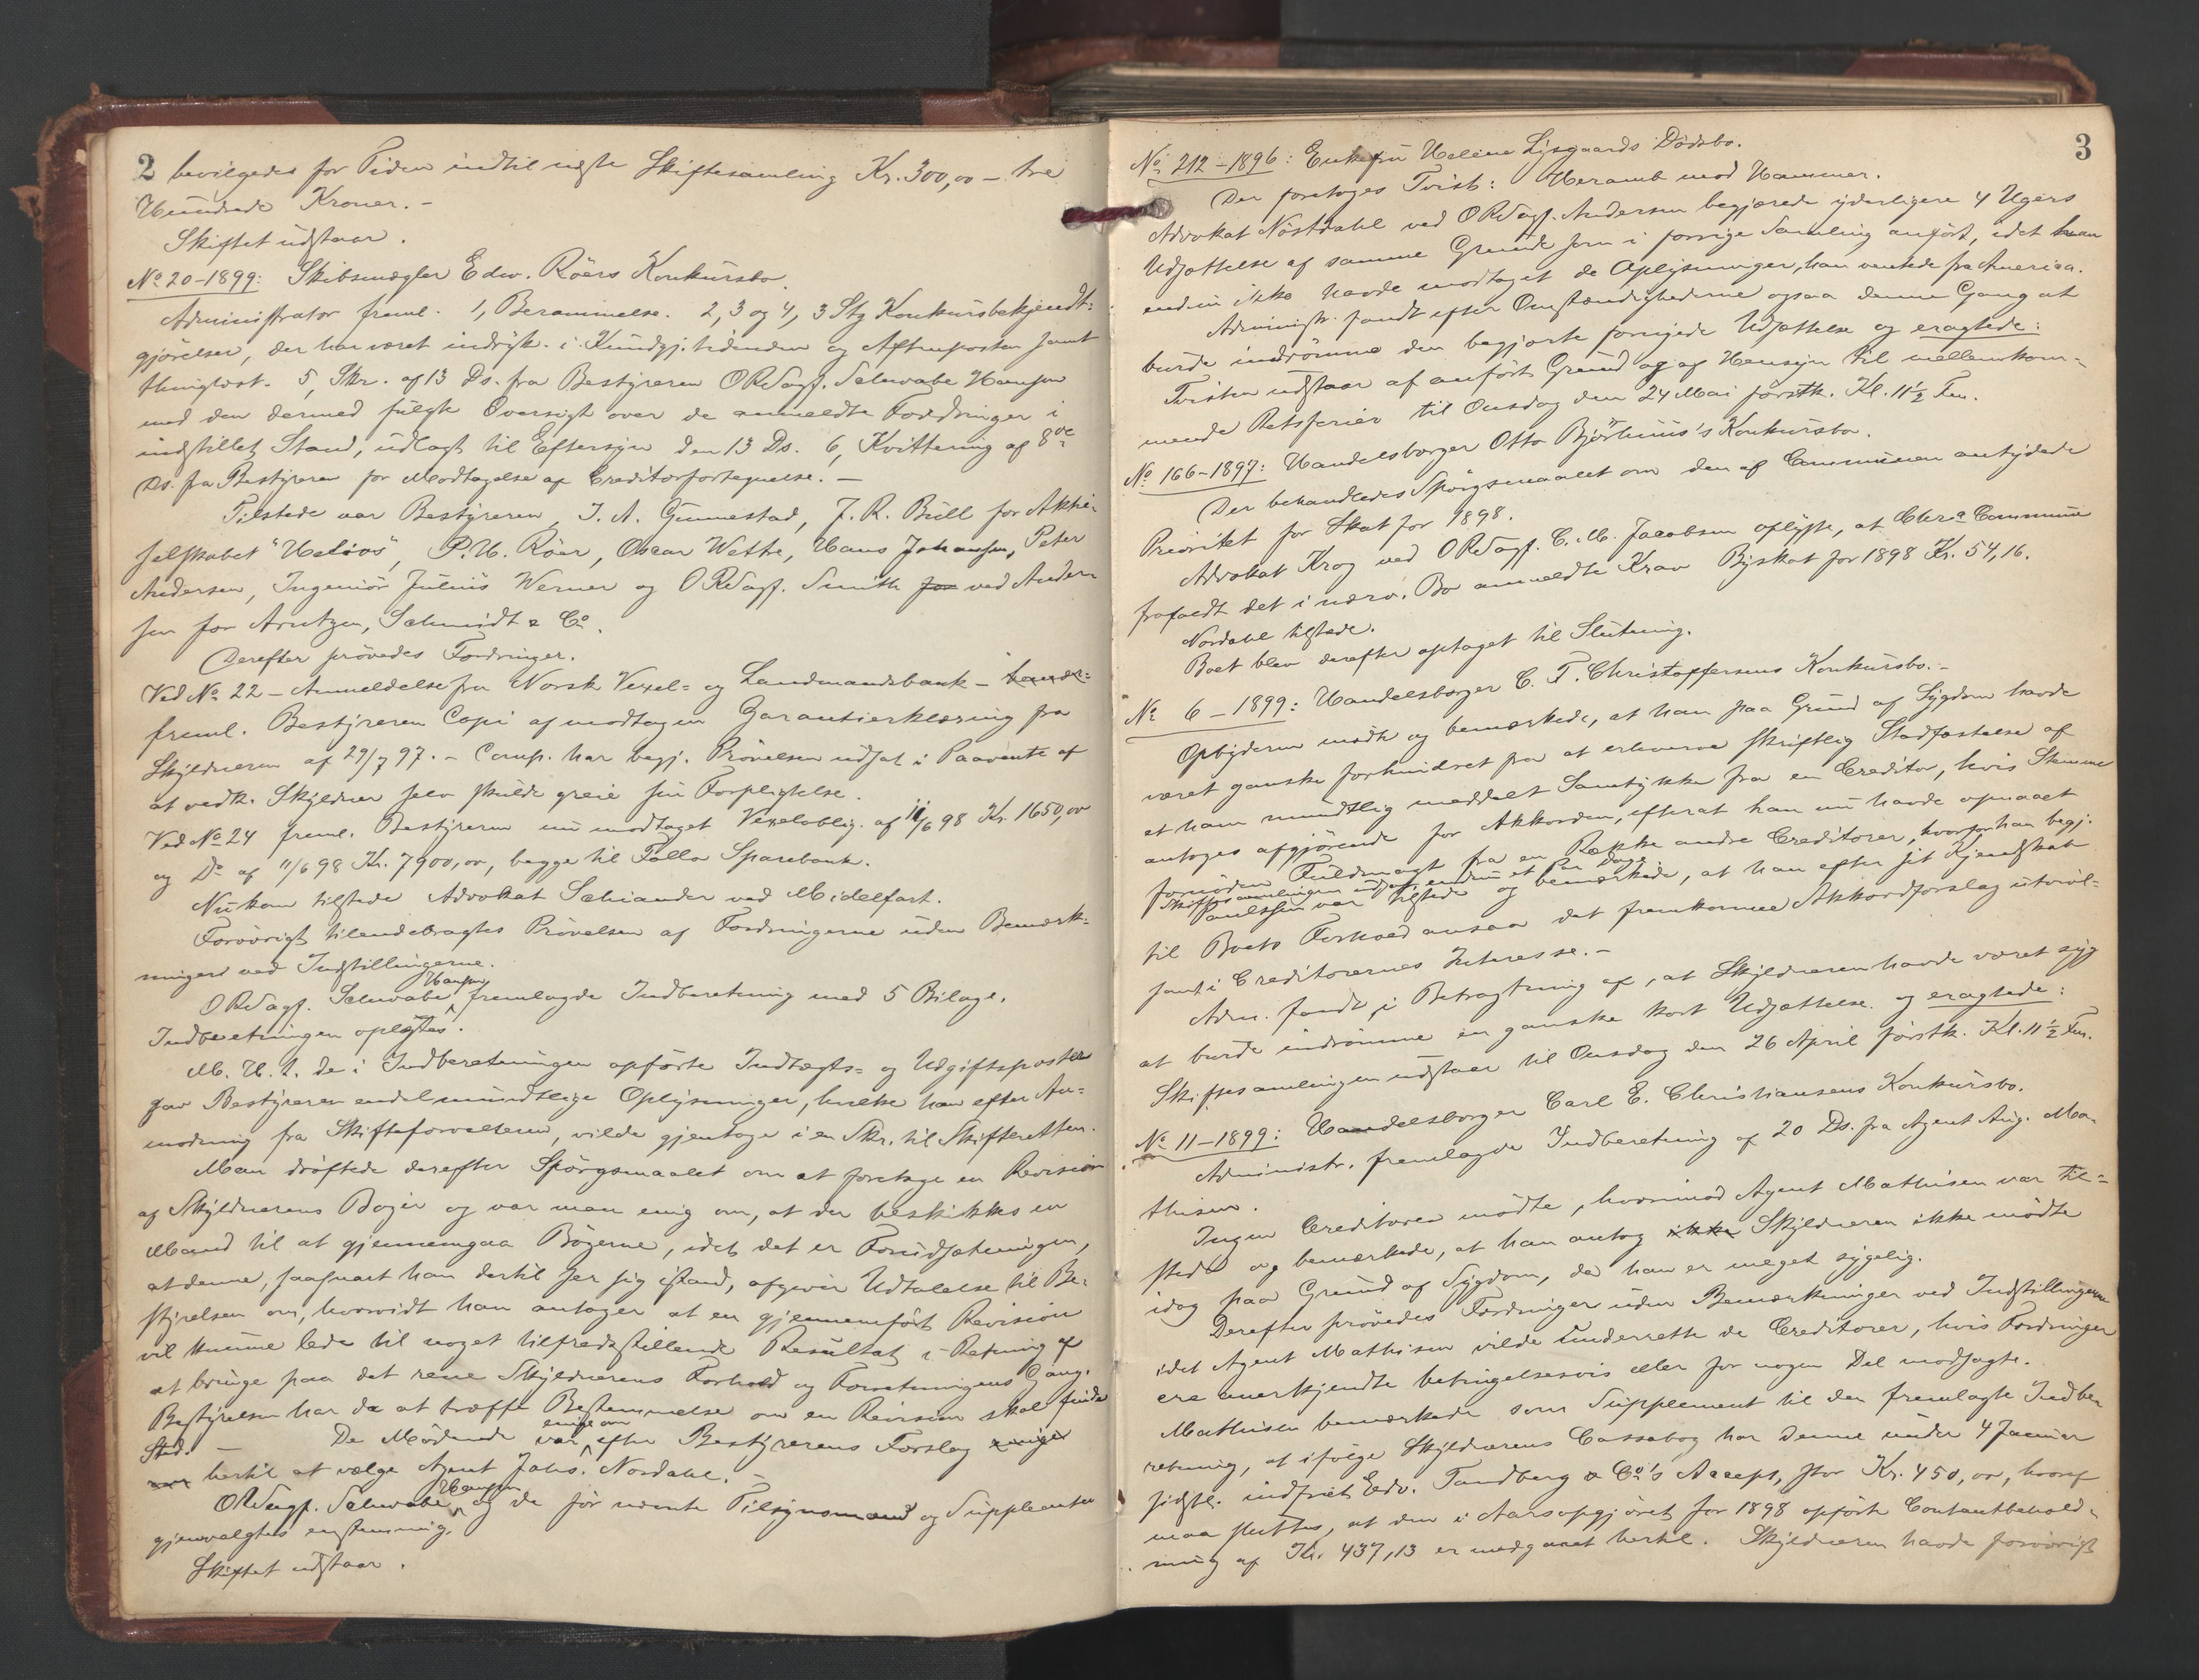 2
bevilgedes for Tiden indtil næste Skiftesamling Kr. 300,00 – tre
Hundrede Kroner. –
Skiftet udstaar.
No 20-1899: Skibsmægler Edw. Röers Konkursbo.
Administrator freml. 1, Berammelse. 2, 3 og 4, 3 Stg Konkursbekjendt-
gjörelser, der har været indryk. i Kundgj. tidenden og Aftenposten samt
thinglæst. 5, Skr. af 13 Ds. fra Bestyreren ORSagf. Schwabe Hansen
med den dermed fulgte Oversigt over de anmeldte Fordringer i
indstillet Stand, udlagt til Eftersyn den 13 Ds. 6, Kvittering af 8de
Ds. fra Bestyreren for Modtagelse af Creditorfortegnelse. –
Tilstede var Bestyreren, I. A. Gunnestad, J. R. Bull for Aktie-
selskabet "Helios", P. H. Röer, Oscar Wette, Hans Johansen, Peter
Andersen, Ingeniör Julius Werner og ORSagf. Smith for ved Ander-
sen for Arntzen, Schmidt & Co.
Derefter prövedes Fordringer.
Ved No 22 – Anmeldelse fra Norsk Vexel- og Landmandsbank –
freml. Bestyreren Copi af modtagen Garantierklæring fra
Skyldneren af 29/7 97. – Comp. har begj. Prövelsen udsat i Paavente af
at vedk. Skyldner selv skulde greie sin Forpligtelse.
Ved No 24 freml. Bestyreren nu modtaget Vexeloblig. af 11/6 98 Kr. 1650,00
og Do af 11/6 98 Kr. 7900,00, begge til Follo Sparebank.
Nu kom tilstede Advokat Schiander ved Midelfart.
Forövrigt tilendebragtes Prövelsen af Fordringerne uden Bemærk-
ninger ved Indstillingerne.
ORSagf. Schwabe Hansen fremlagde Indberetning med 5 Bilage.
Indberetningen oplæstes.
M. H. t. de i Indberetningen opförte Indtægts- og Udgiftsposter
gav Bestyreren endel mundtlige Oplysninger, hvilke han efter An-
modning fra Skifteforvalteren, vilde gjentage i en Skr. til Skifteretten.
Man dröftede derefter Spörgsmaalet om at foretage en Revision
af Skyldnerens Böger og var man enig om, at der beskikkes en
Mand til at gjennemgaa Bögerne, idet det er Forudsætningen,
at denne, saasnart han dertil ser sig istand, afgiver Udtalelse til Be-
styrelsen om, hvorvidt han antager at en gjennemfört Revision
vil kunne lede til noget tilfredsstillende Resultat i Retning af
at bringe paa det rene Skyldnerens Forhold og Forretningens Gang.
Bestyrelsen har da at træffe Bestemmelse om en Revision skal finde
Sted. – De Mödende var enige om efter Bestyrerens Forslag enige
hertil at vælge Agent Johs. Nordahl. –
ORSagf. Schwabe Hansen og de för nævnte Tilsynsmænd og Suppleanter
gjenvalgtes enstemmig.
Skiftet udstaar.
3
No 212-1896: Enkefru Helene Lysgaards Dödsbo.
Der foretoges Tvist: Heramb mod Hammer.
Advokat Nöstdahl ved ORSagf. Andersen begjærede yderligere 4 Ugers
Udsættelse af samme Grunde som i forrige Samling anfört, idet han
endnu ikke havde modtaget de Oplysninger, han ventede fra America.
Administr. fandt efter Omstændighederne ogsaa denne Gang at
burde indrömme den begjærte fornyede Udsættelse og eragtede:
Tvisten udstaar af anfört Grund og af Hensyn til mellemkom-
mende Retsferier til Onsdag den 24 Mai förstk. Kl. 11½ Fm.
No 166-1897: Handelsborger Otto Björhuus's Konkursbo.
Der behandledes Spörgsmaalet om den af Communen antydede
Prioritet for Skat for 1898.
Advokat Krog ved ORSagf. C. M. Jacobsen oplyste, at Chra Commune
frafaldt det i nærv. Bo anmeldte Krav Byskat for 1898 Kr. 54,16.
Nordahl tilstede.
Boet blev derefter optaget til Slutning.
No 6-1899: Handelsborger C. F. Christoffersens Konkursbo. –
Opbyderen mödte og bemærkede, at han paa Grund af Sygdom havde
været ganske forhindret fra at erhverve skriftlig Stadfæstelse af
et ham mundtlig meddelt Samtykke fra en Creditor, hvis Stemme
antoges afgjörende for Akkorden, efterat han nu havde opnaaet
fornöden Fuldmagt fra en Række andre Creditorer, hvorfor han begj.
Skiftesamlingen udsat endnu et Par Dage.
Paulssen var tilstede og bemærkede, at han efter sit Kjendskab
til Boets Forhold ansaa det fremkomne Akkordforslag utvivl-
somt i Creditorernes Interesse. –
Adm. fandt, i Betragtning af, at Skyldneren havde været syg
at burde indrömme en ganske kort Udsættelse og eragtede:
Skiftesamlingen udstaar til Onsdag den 26 April förstk. Kl. 11½ Fm.
No 11-1899: Handelsborger Carl E. Christiansens Konkursbo.
Administr. fremlagde Indberetning af 20 Ds. fra Agent Aug. Ma-
thisen.
Ingen Creditorer mödte, hvorimod Agent Mathisen var til-
stede og bemærkede, at han antog ikke Skyldneren ikke mödte
idag paa Grund af Sygdom, da han er meget sygelig.
Derefter prövedes Fordringer uden Bemærkninger ved Indstillingerne
idet Agent Mathisen vilde underrette de Creditorer, hvis Fordringer
ere anerkjendte betingelsesvis eller for nogen Del modsagte.
Mathisen bemærkede som Supplement til den fremlagte Indbe-
retning, at ifölge Skyldnerens Cassabog har denne under 4 Januar
sidstl. indfriet Edv. Tandberg & Co's Accept, stor Kr. 450,00, hvoraf
maa sluttes, at den i Aarsopgjöret for 1898 opförte Contantbehold-
ning af Kr. 437,13 er medgaaet hertil. Skyldneren havde forövrigt